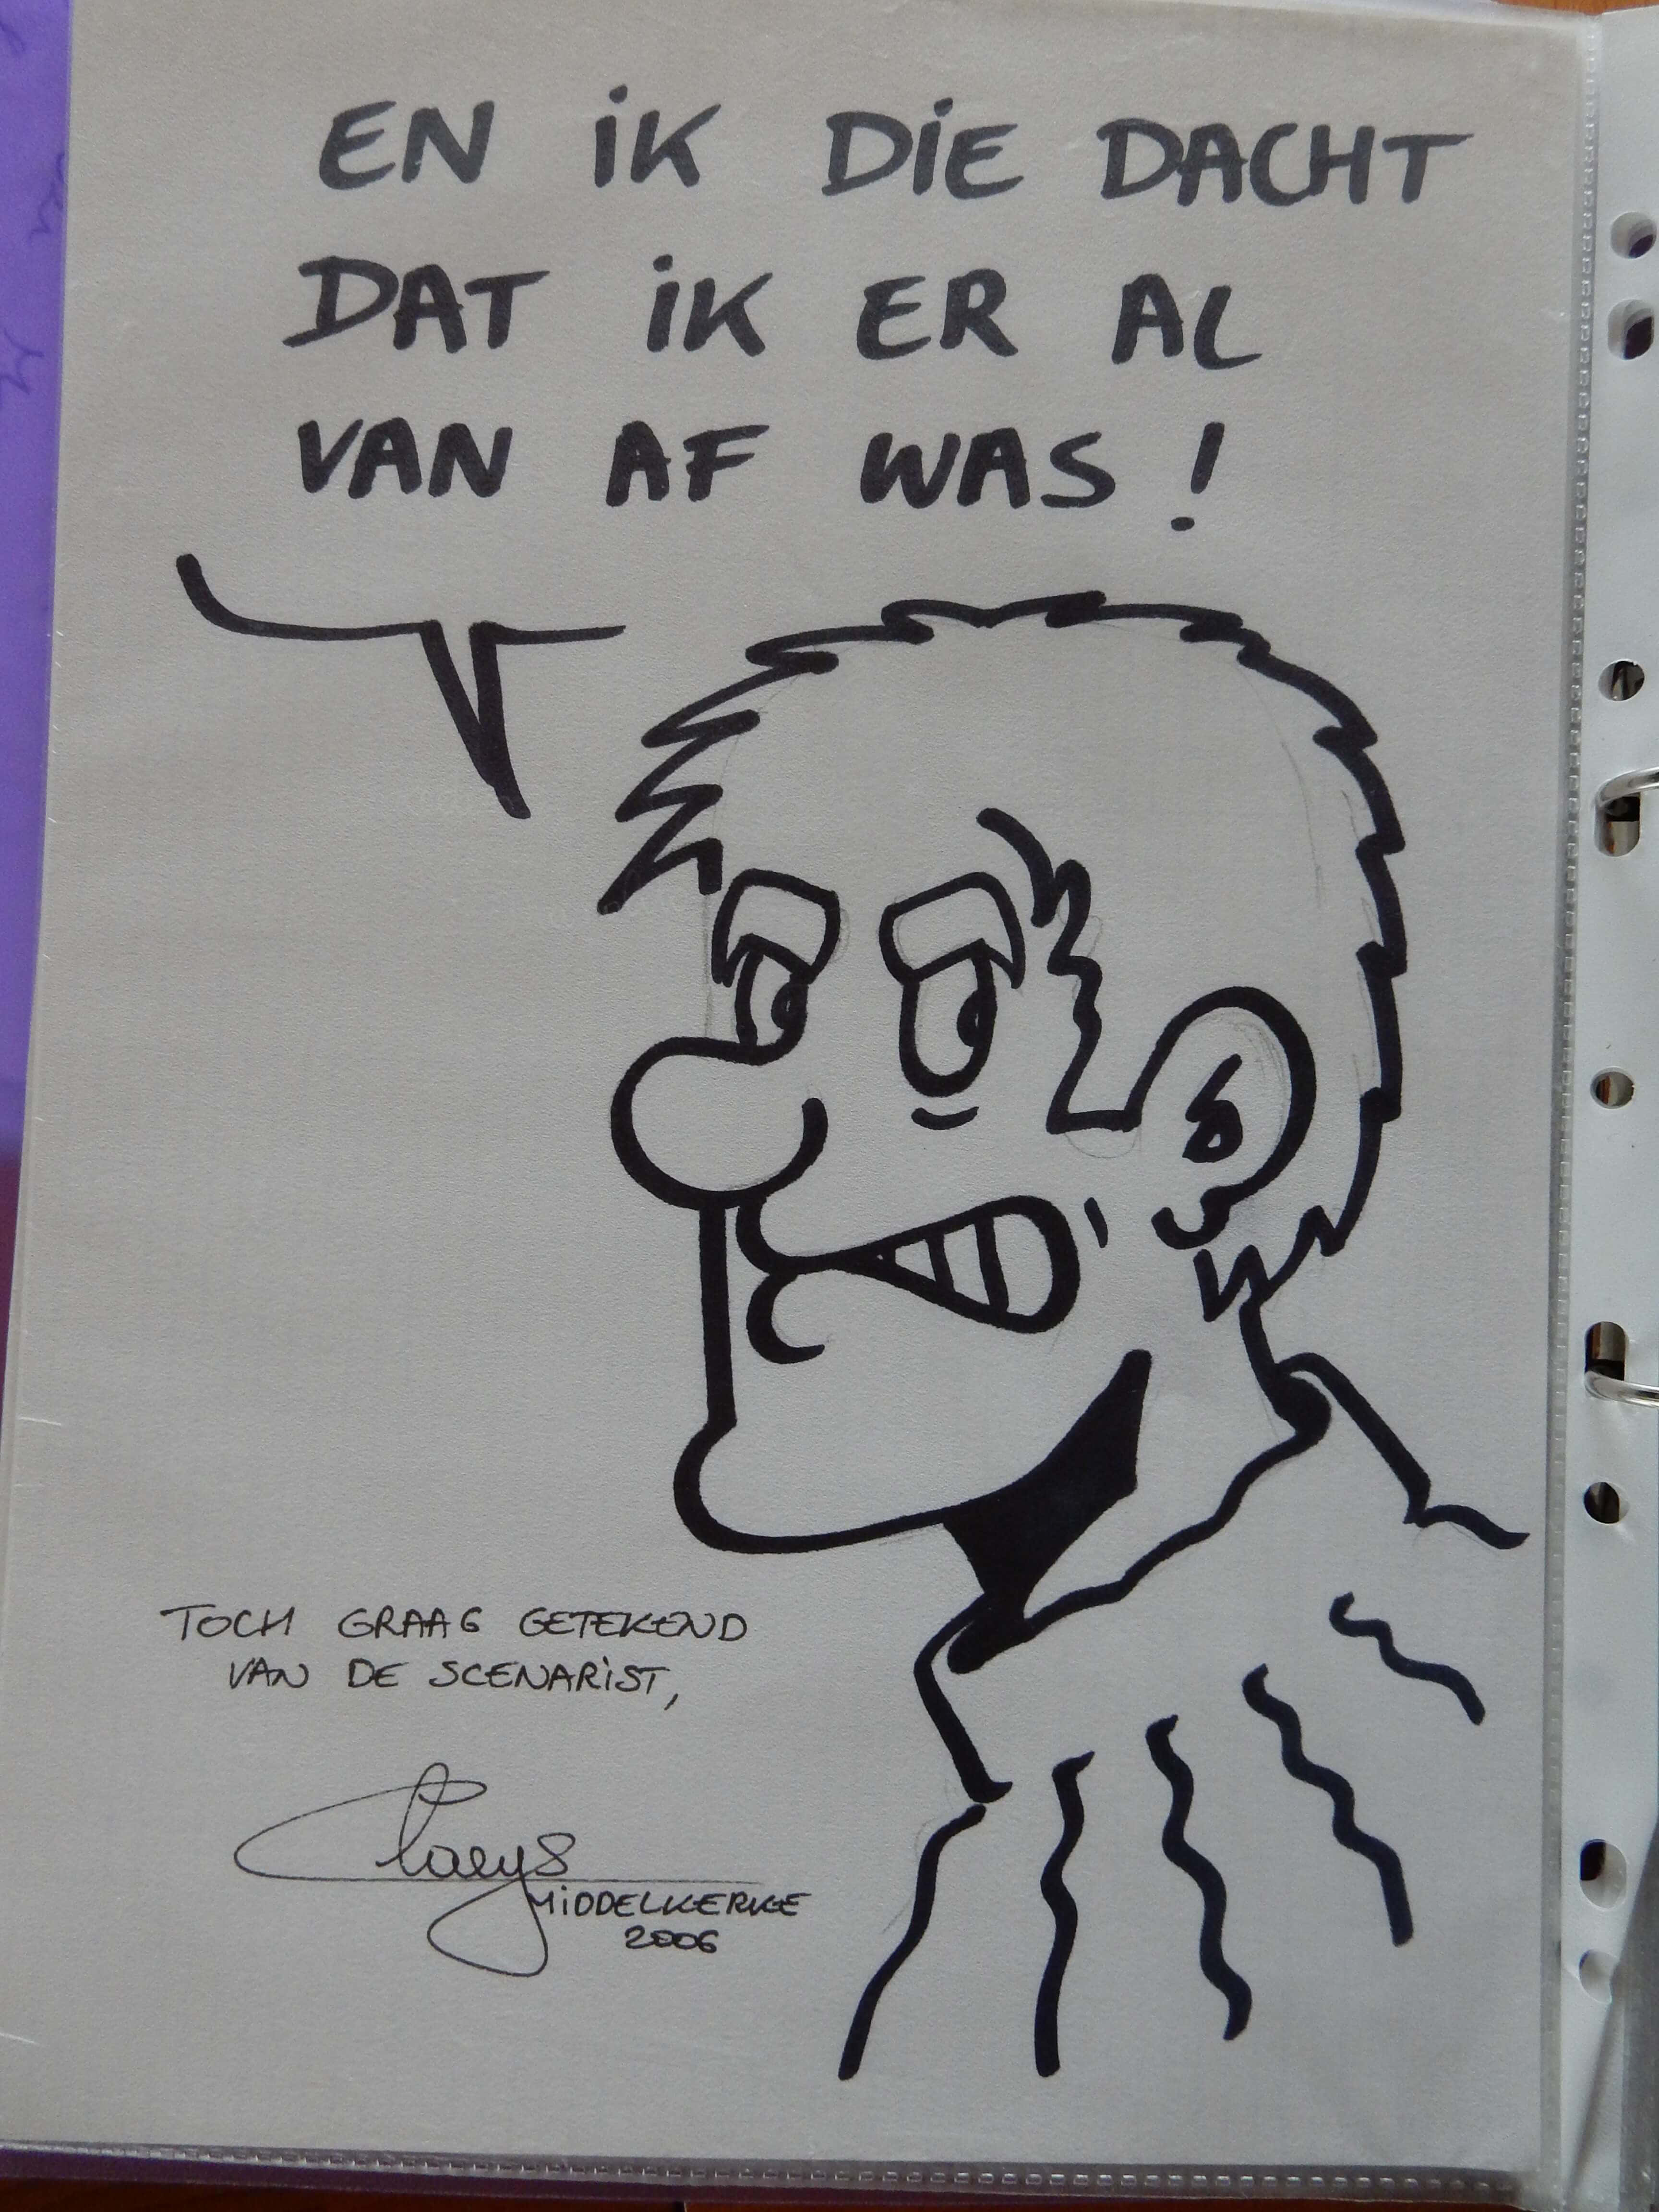 EN iK DiE DACHT
DAT iK ER AL
VAN AF WAS!
TOCH GRAAG GETEKEND
VAN DE SCENARiST,
Claeys
MiDDELKERKE
2006